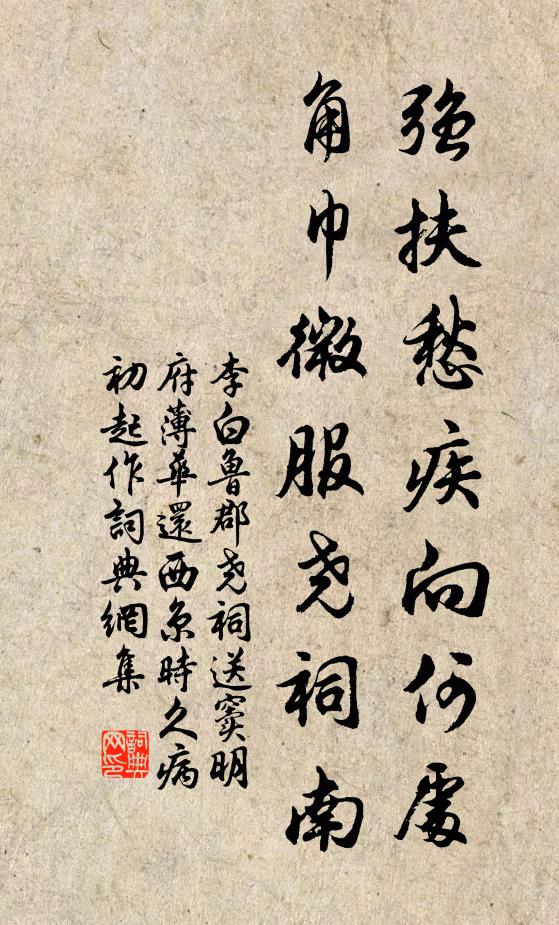 强扶愁疾向何處
角巾微服尧祠南
李白魯郡尧祠送竇明
府薄華還西京時久病
初起作詞典網集
詞典
网印